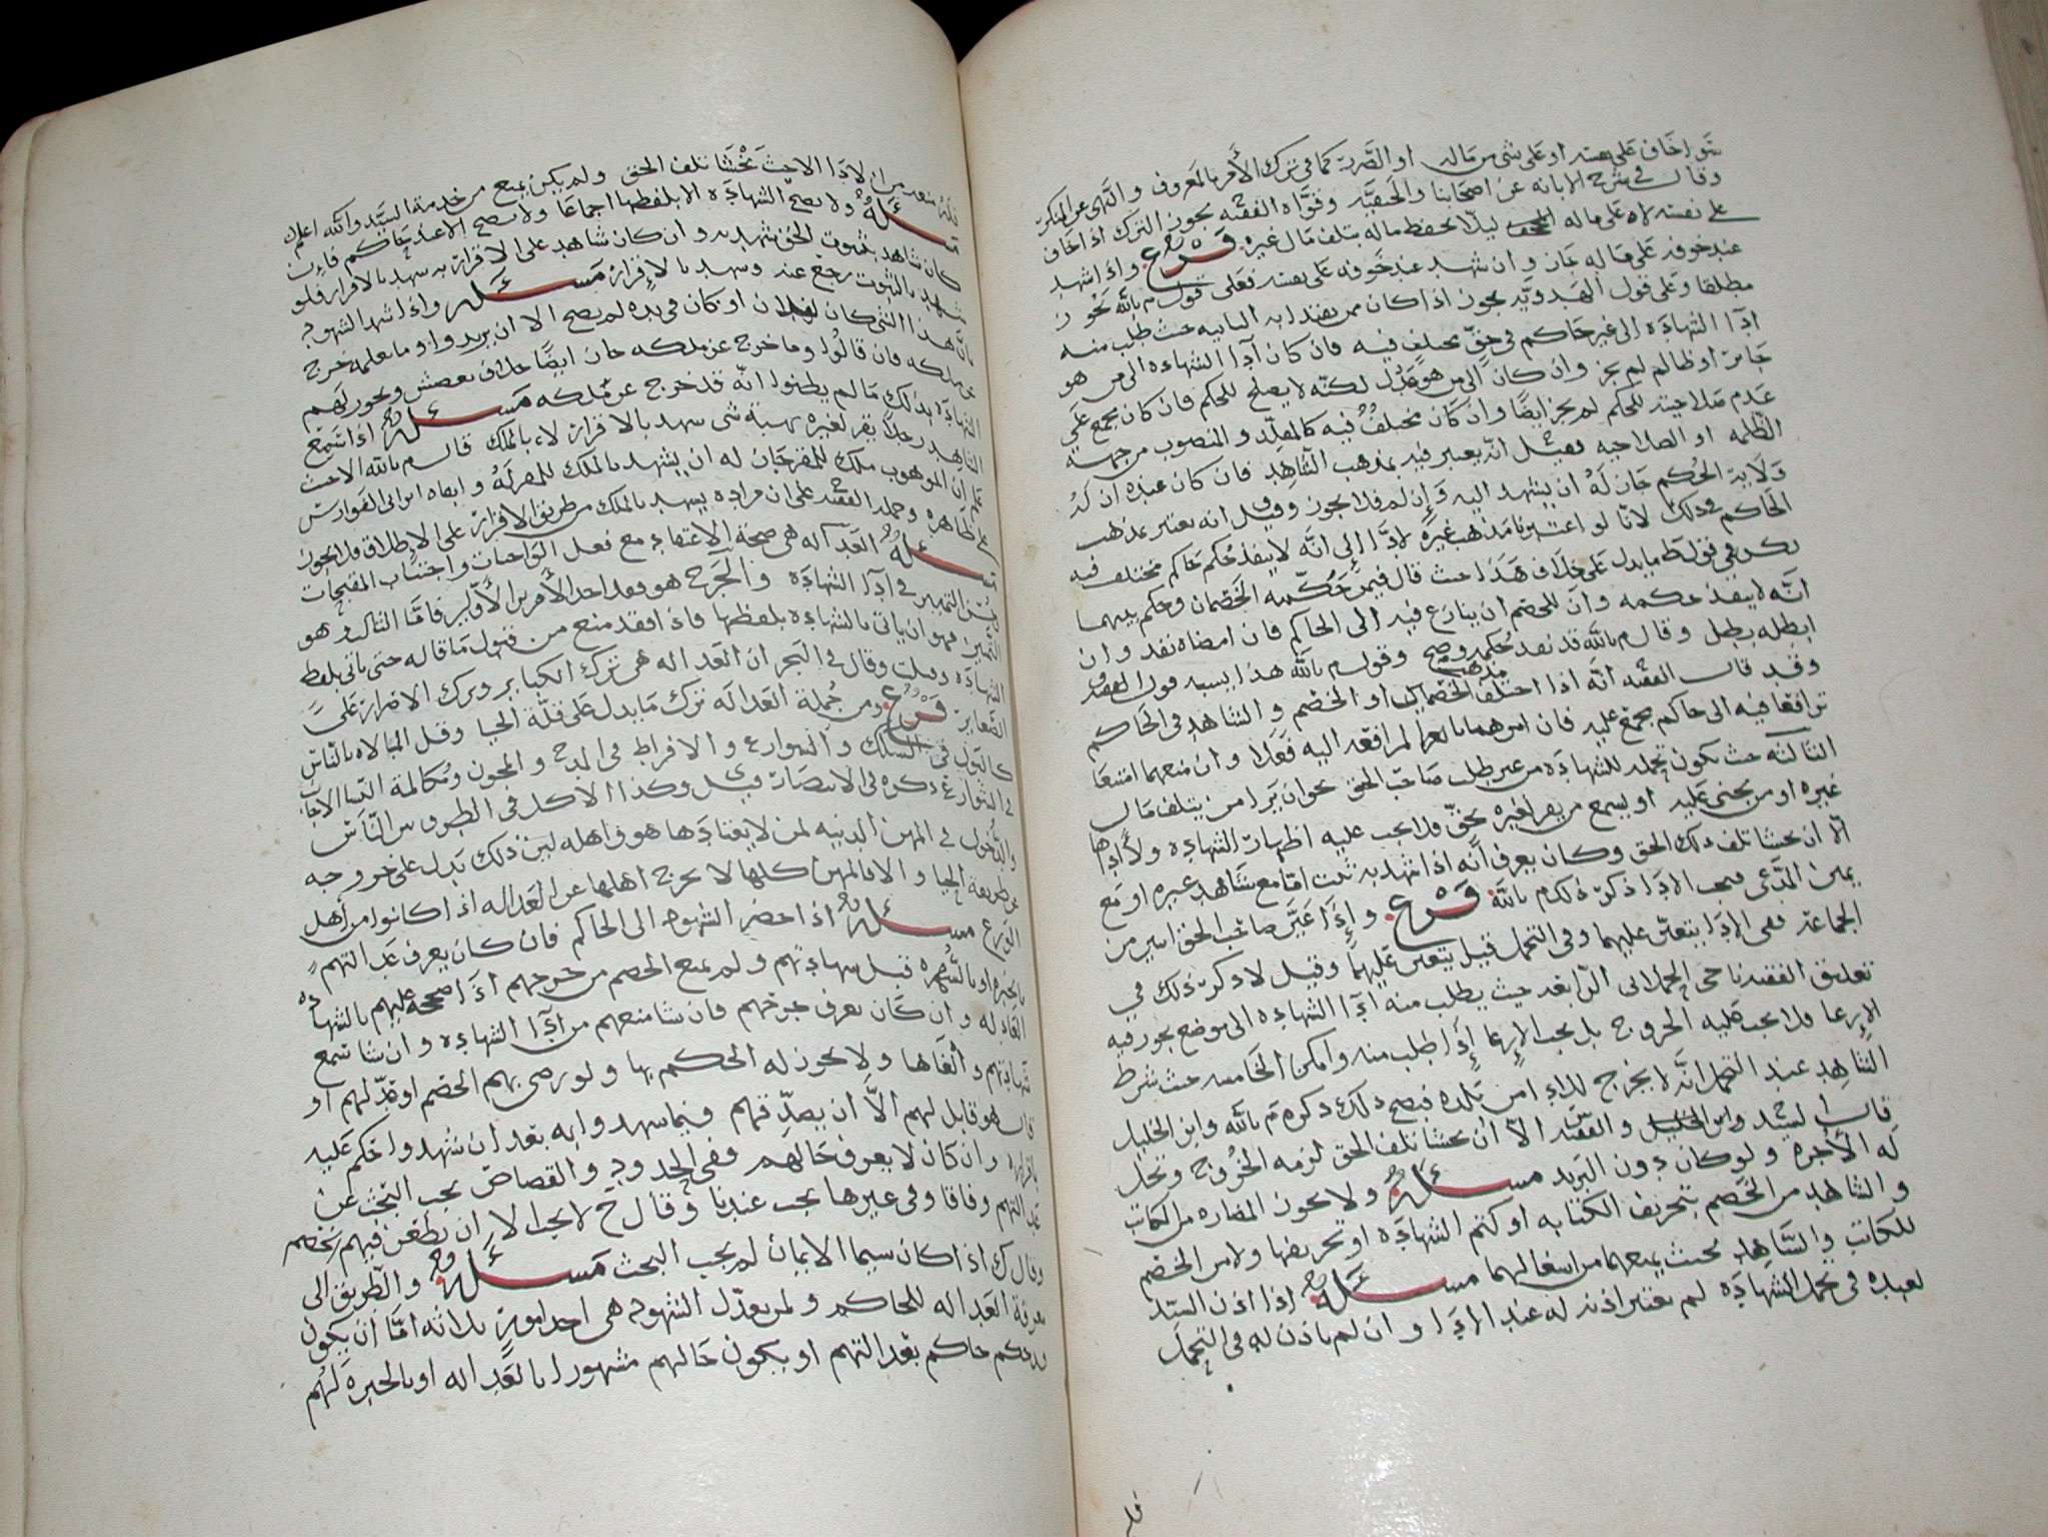 او خاف على نفسه او على شي من ماله او الضرر كما في ترك الأمر بالمعروف والنهي عن المنكر
وقال في شرح الابانه عن اصحابنا والحنفيه وقواه الفقيه يجوز الترك اذا خاف
على نفسه لا على ماله ليلا يحفظ ماله بتلف مال غيره فرع واذا شهد
عند خوفه على ماله جاز وان شهد عند خوفه على نفسه فعلى قول م بالله يجوز
مطلقا وعلى قول الهدويه يجوز اذا كان ممن يقتدا به الثانيه حيث طلب منه
ادا الشهاده الى غير حاكم في حق مختلف فيه فان كان ادا الشهاده الى من هو
جاير او ظالم لم يجز وان كان الى من هو عدل لكنه لا يصلح للحكم فان كان مجمع على
عدم صلاحيته للحكم لم يجز ايضا وان كان مختلف فيه كالمقلد والمنصوب من جهة
الظلمه او الصلاحيه فقيل انه يعتبر فيه بمذهب الشاهد فان كان عنده ان له
ولاية الحكم جاز له ان يشهد اليه وإن لم فلا يجوز وقيل انه يعتبر بمذهب
الحاكم في ذلك لانا لو اعتبرنا مذهب غيره لادا إلى انه لا ينفذ حكم حاكم مختلف فيه
لكن في قول ط ما يدل على خلاف هذا حيث قال فيمن حكمه الخصمان وحكم بينهما
انه لا ينفذ حكمه وان للخصم ان ينازع فيه الى الحاكم فان امضاه نفذ وان
ابطله بطل وقال م بالله قد نفذ حكمه وصح وقول م بالله هذا يشبه قول الفقيه
وقد قال الفقيه انه اذا اختلف مذهب الخصمان او الخصم والشاهد في الحاكم
ترافعا فيه الى حاكم مجمع عليه فان امرهما بالمرافعه اليه فعلا وان منعهما امتنعا
الثالثه حيث يكون تحمله للشهاده من غير طلب صاحب الحق نحو ان يرا من يتلف مال
غيره او من يجني عليه او يسمع من يقر لغيره بحق فلا يجب عليه اظهار الشهاده ولا أداها
الا ان يخشا تلف ذلك الحق وكان يعرف أنه اذا شهد به ثبت اما مع شاهد غيره او مع
يمين المدعي فيجب الادا ذكر ذلك م بالله فرع وإذا عين صاحب الحق اثنين من
الجماعه ففي الادا يتعين عليهما وفي التحمل قيل يتعين عليهما وقيل لا ذكر ذلك في
تعليق الفقيه ناجي الحملاني الرابعه حيث يطلب منه ادا الشهاده الى موضع يجوز فيه
الإرعا فلا يجب عليه الخروج بل يجب الإرعا إذا طلب منه وامكن الخامسه حيث شرط
الشاهد عند التحمل انه لا يخرج للادا من بلده فيصح ذلك ذكره م بالله وابن الخليل
قال السيد وابن الخليل والفقيه الا ان يخشا تلف الحق لزمه الخروج وتحل
له الأجره ولو كان دون البريد مسئله ولا يجوز المضاره من الكاتب
والشاهد من الخصم بتحريف الكتابه او كتم الشهاده او تحريفها ولا من الخصم
للكاتب والشاهد بحيث يمنعهما من اشغالهما مسئله إذا اذن السيد
لعبده في تحمل الشهاده لم يعتبر اذنه له عند الادا وان لم ياذن له في التحمل
فله
فله منعه من الادا الا حيث يخشا تلف الحق ولم يكن يمنع من خدمة السيد والله اعلم
مسئله ولا تصح الشهاده الا بلفظها اجماعا ولا تصح الا عند حاكم فإن
كان شاهد بثبوت الحق شهد به وان كان شاهد على الاقرار به شهد بالاقرار فلو
شهد بالثبوت رجع عنه وشهد بالإقرار مسئله واذا شهد الشهود
بان هذا الشي كان لفلان او كان في يده لم يصح الا ان يزيدوا وما نعلمه خرج
عن ملكه فان قالوا وما خرج عن ملكه جاز ايضا خلاف بعضش ويجوز لهم
الشهاده بذلك ما لم يظنوا انه قد خرج عن ملكه مسئله اذا سمع
الشاهد رجلا يقر لغيره بهبة شي شهد بالاقرار لا بالملك قال م بالله الا حيث
علم ان الموهوب ملك للمقر جاز له ان يشهد بالملك للمقر له وابقاه ابن ابي الفوارس
على ظاهره وحمله الفقيه على ان مراده يشهد بالملك من طريق الاقرار على الإطلاق فلا يجوز
مسئله العداله هي صحة الاعتقاد مع فعل الواجبات واجتناب المقبحات
وحسن التمييز في ادا الشهاده والجرح هو فقد احد الأمرين الأولين فاما الثالث وهو
التمييز فهو ان ياتي بالشهاده بلفظها فاذا فقد منع من قبول ما قاله حتى ياتي بلفظ
الشهاده وقال في البحر ان العداله هي ترك الكباير وترك الاصرار على
الصغاير فرع ومن جملة العداله ترك ما يدل على قلة الحيا وقل المبالاه بالناس
كالبول في السكك والشوارع والافراط في المدح والمجون ومكالمة النسا الاجانب
في الشوارع ذكره في الانتصار قيل وكذا الاكل في الطرق بين الناس
والدخول في المهن الدنيه لمن لا يعتادها هو واهله لئن ذلك يدل على خروجه
عن طريقة الحيا والا فالمهن كلها لا تخرج اهلها عن العداله اذا كانوا من أهل
الورع مسئله اذا حضر الشهود الى الحاكم فان كان يعرف عدالتهم
بالخبره او بالشهره قبل شهادتهم ولم يمنع الخصم من جرحهم اذا صححه عليهم بالشهاده
العادله وان كان يعرف جرحهم فان شا منعهم من ادا الشهاده وان شا سمع
شهادتهم والغاها ولا يجوز له الحكم بها ولو رضي بهم الخصم او عدلهم او
قال هو قابل لهم الا أن يصدقهم فيما شهدوا به بعد ان شهدوا حكم عليه
باقراره وان كان لا يعرف حالهم ففي الحدود والقصاص يجب البحث عن
عدالتهم وفاقا وفي غيرها يجب عندنا وقال ح لا يجب الا ان يطعن فيهم الخصم
وقال ك اذا كان سيما الايمان لم يجب البحث مسئله والطريق الى
معرفة العداله للحاكم ولمن يعدل الشهود هي احد امور ثلاثه اما أن يكون
قد حكم حاكم بعدالتهم او يكون حالهم مشهورا بالعداله او بالخبره لهم